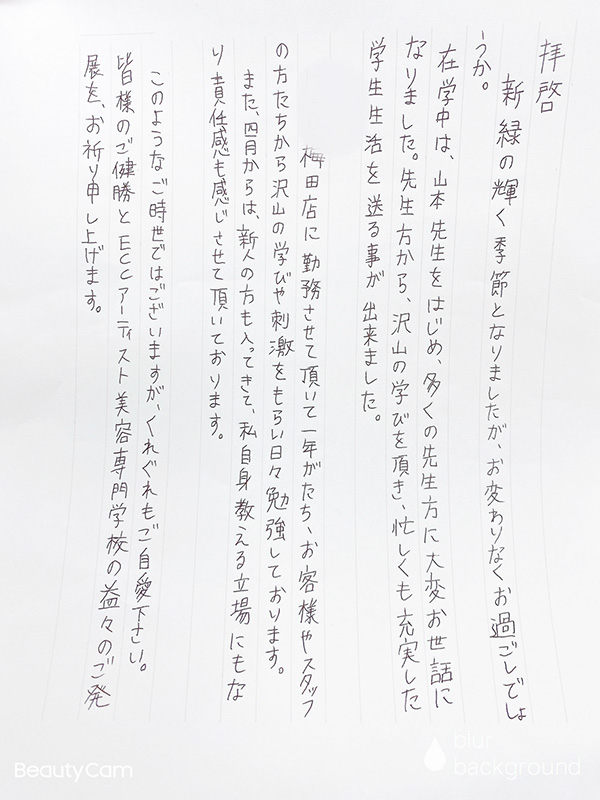 拝啓
新緑の輝く季節となりましたが、お変わりなくお過ごしでしょ
うか。
在学中は、山本先生をはじめ、多くの先生方に大変お世話に
なりました。先生方から、沢山の学びを頂き、忙しくも充実した
学生生活を送る事が出来ました。
梅田店に勤務させて頂いて一年がたち、お客様やスタッフ
の方たちから沢山の学びや刺激をもらい日々勉強しております。
また、四月からは、新人の方も入ってきて、私自身教える立場にもな
り責任感も感じさせて頂いております。
このようなご時世ではございますが、くれぐれもご自愛下さい。
皆様のご健勝とECCアーティスト美容専門学校の益々のご発
展を、お祈り申し上げます。
BeautyCam
blur
background